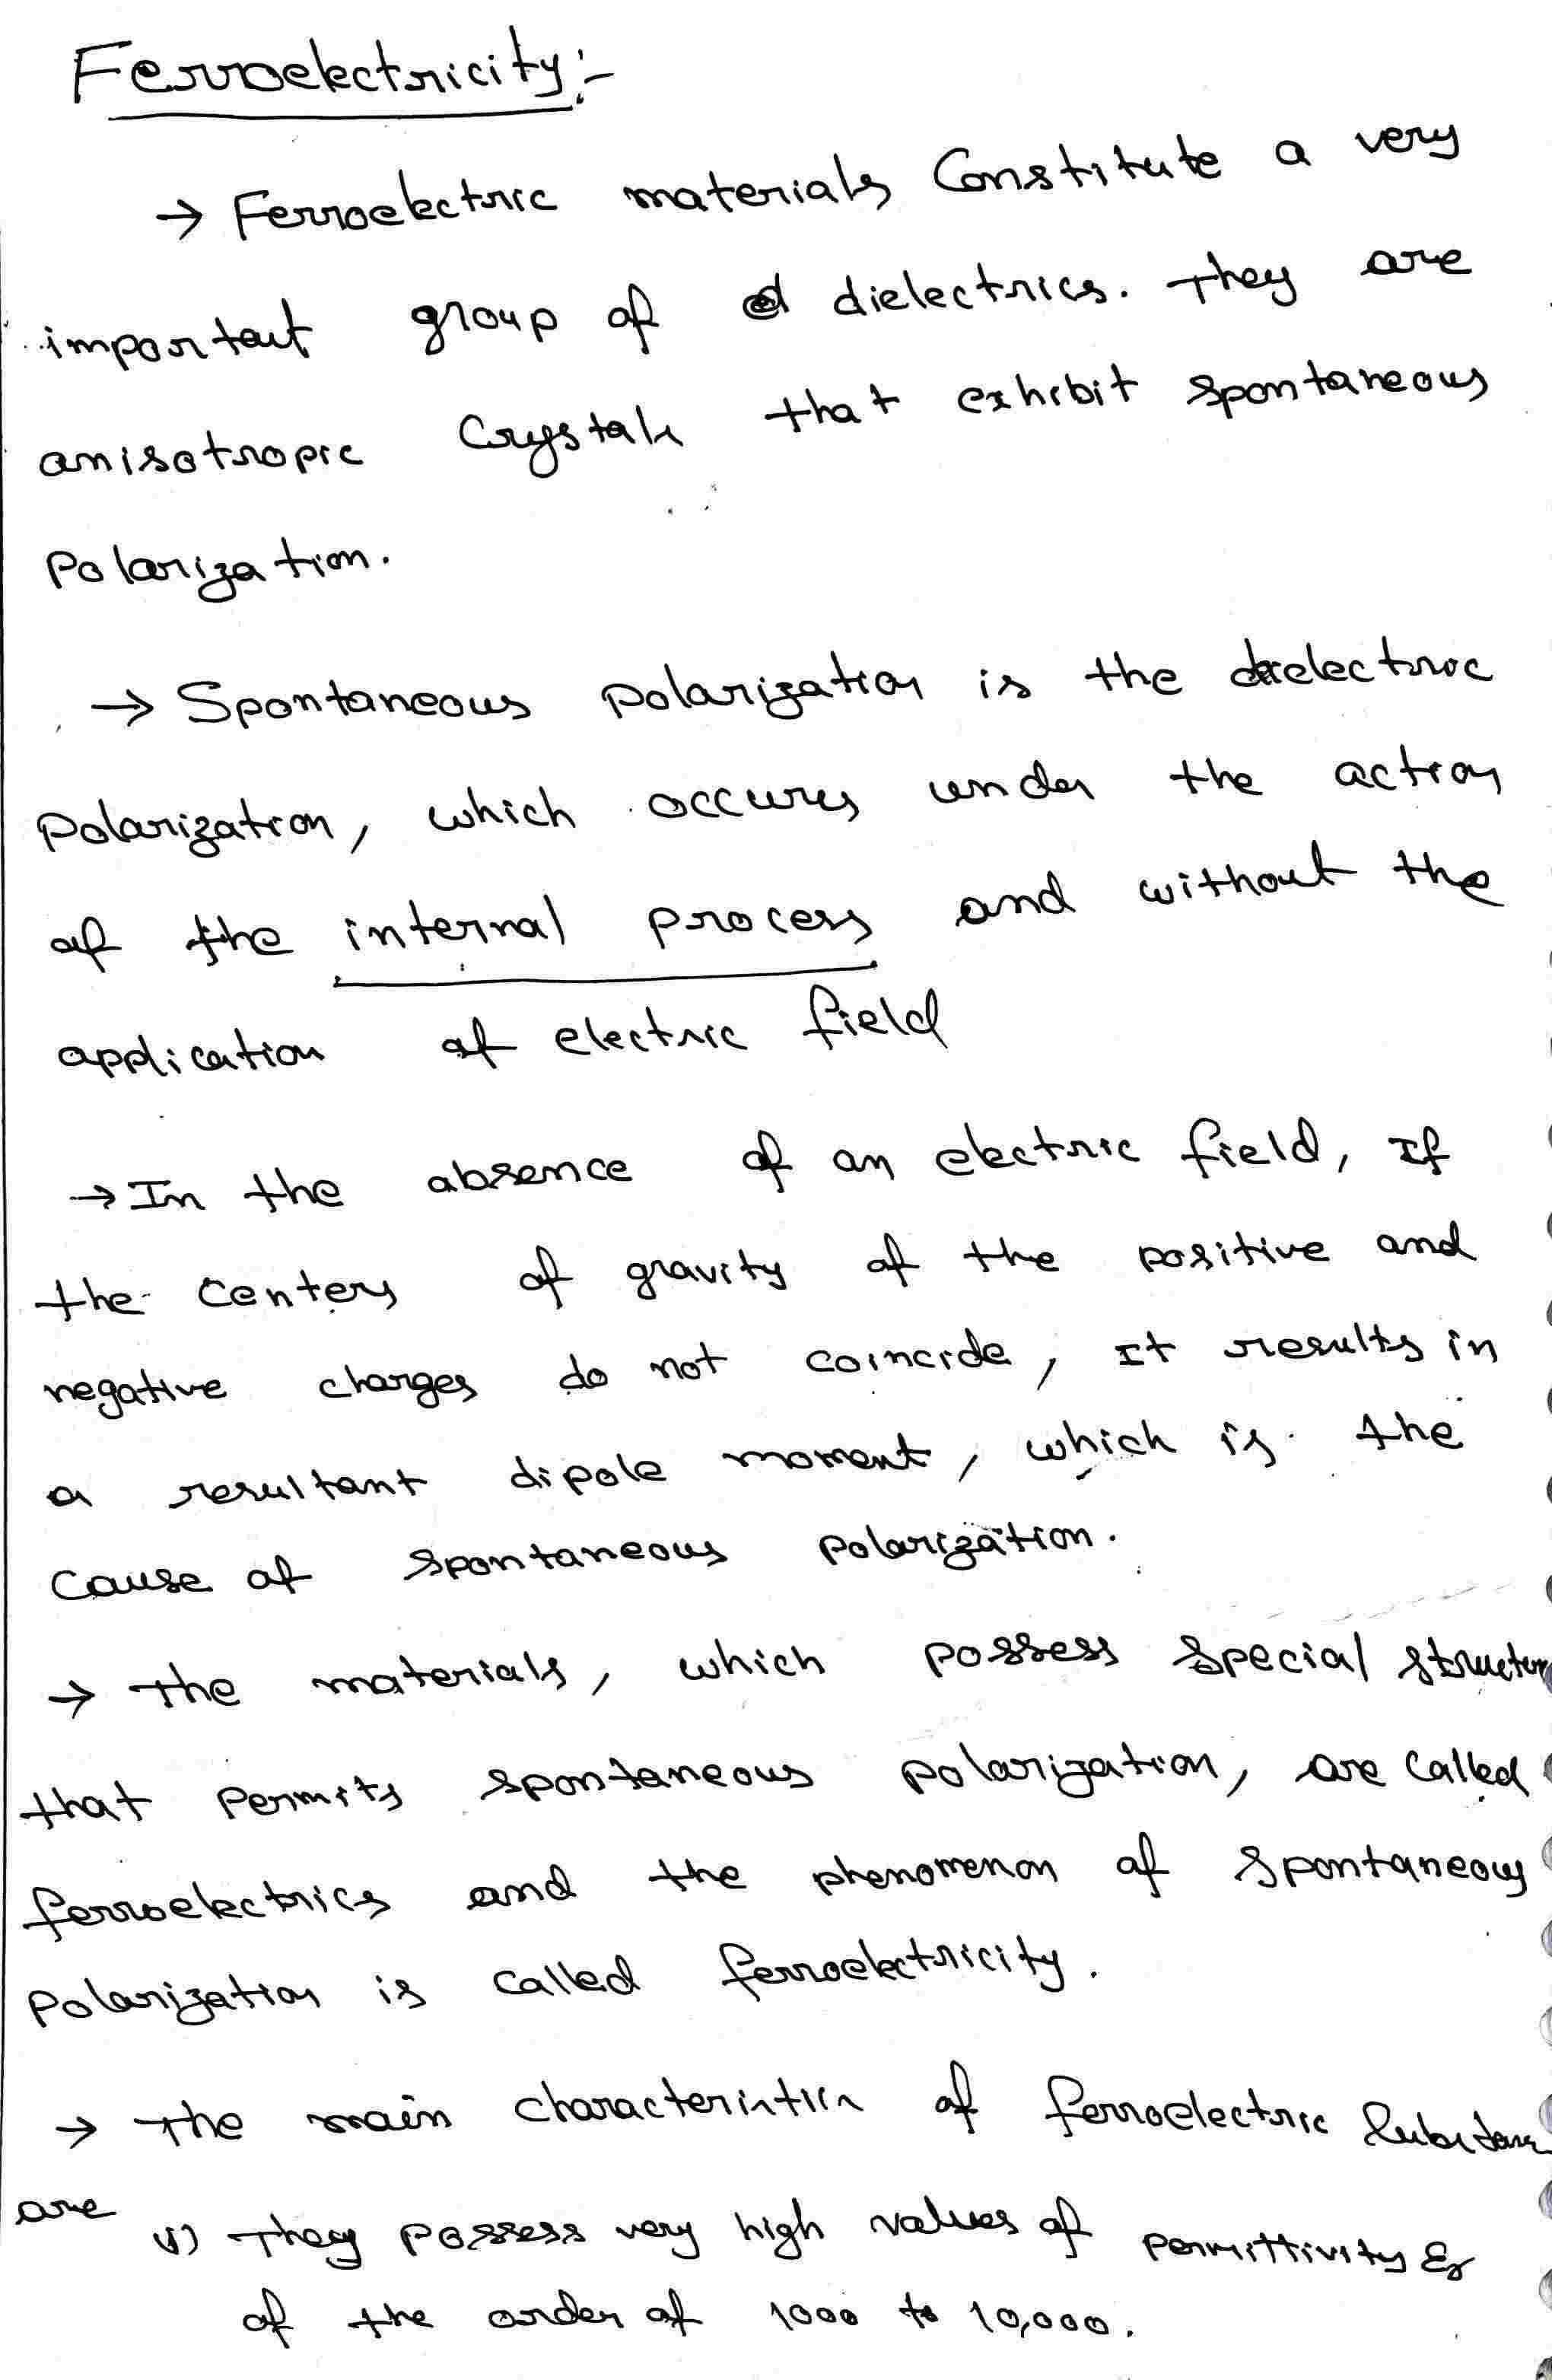 Ferroelectricity:-
→ Ferroelectric materials Constitute a very
important group of dielectrics. They are
anisotropic Crystals that exhibit spontaneous
Polarization.
→ Spontaneous polarization is the dielectric
polarization, which occures under the action
of the internal process and without the
application of electric field
→ In the absence of an electric field, If
the centers of gravity of the positive and
negative charges do not coincide, It results in
a resultant dipole moment, which is the
cause of spontaneous polarization.
→ The materials, which possess special structure
that permits spontaneous polarization, are called
ferroelectrics and the phenomenon of spontaneous
polarization is called ferroelectricity.
→ The main characteristics of ferroelectric Substance
are
(i) They possess very high values of permittivity εr
of the order of 1000 to 10,000.